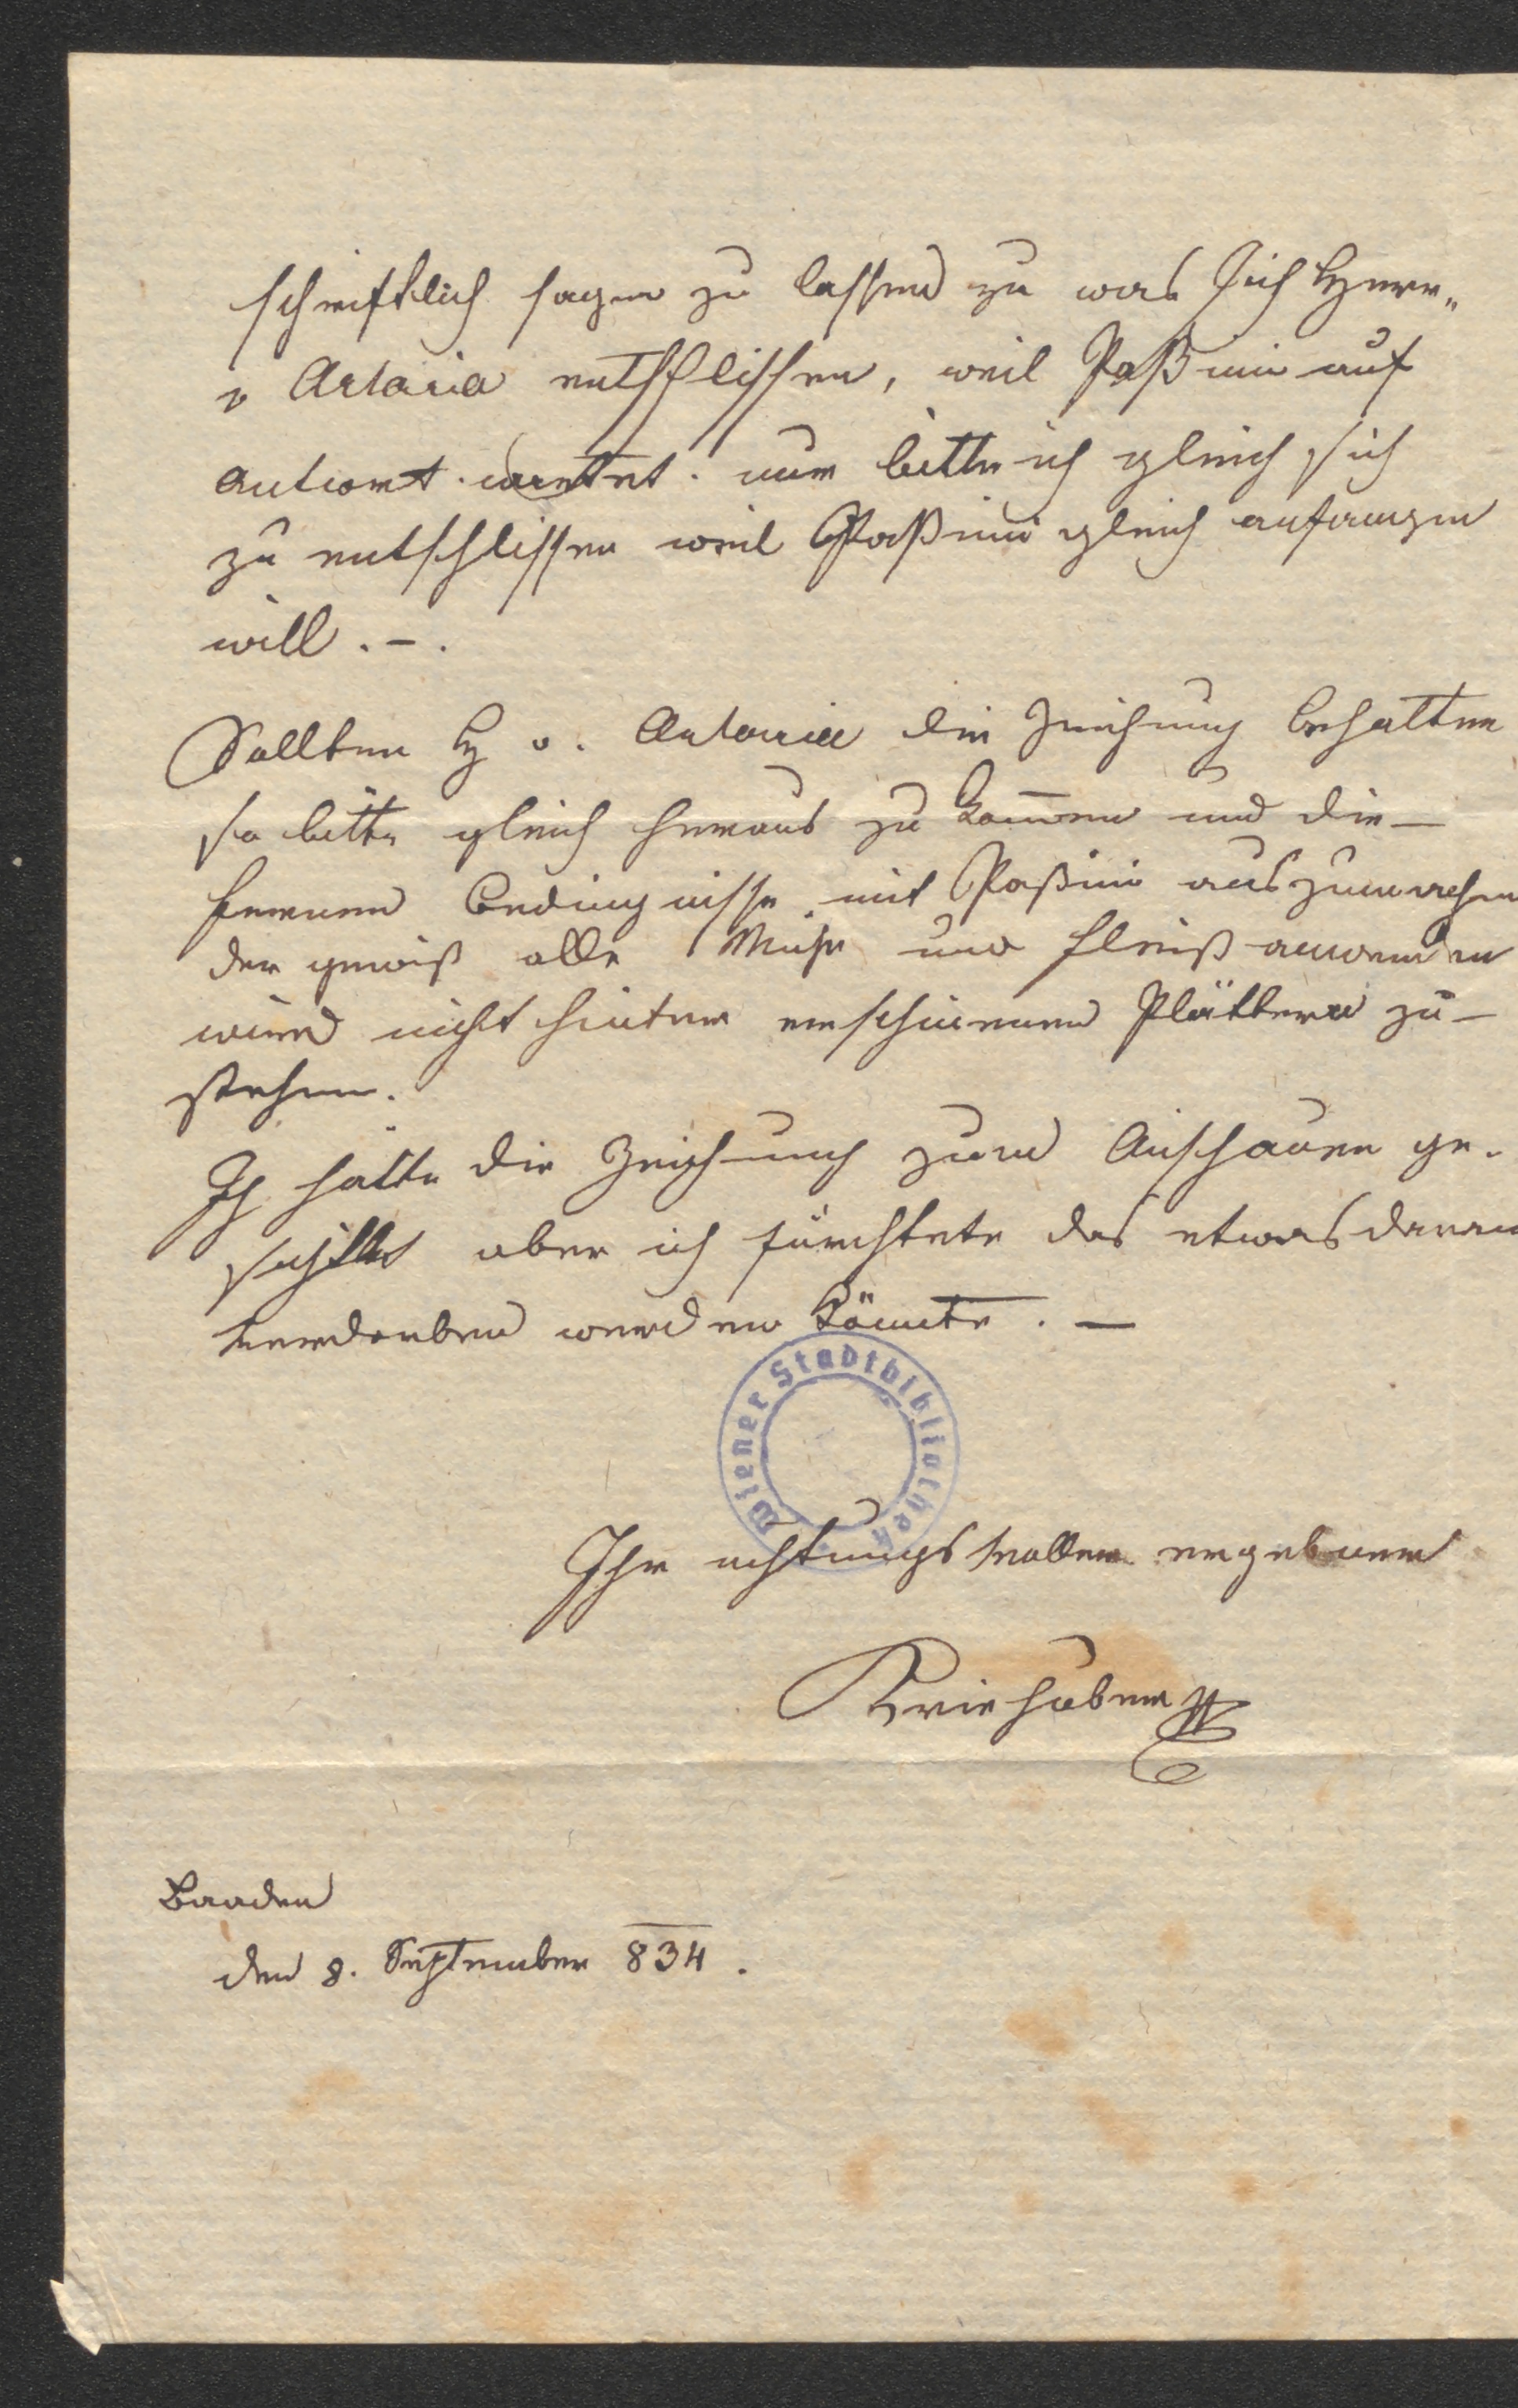 schriftlich sagen zu lassen zu was sich Herr„
v Artaria entschlissen, weil Paßini auf
Antwort wartet. nur bitte ich gleich sich
zu entschlissen weil Paßini gleich anfangen
will . – .
Sollten H v. Artaria die Zeichnung behalten
so bitte gleich heraus zu kom̅en und die –
fernern Bedingnisse mit Paßini auszumachen
der gewiß alle Mühe und Fleiß anwenden
wird nicht hinter erschienenen Blättern zu –
stehen.
Ich hätte die Zeichnung zum Anschauen ge-
schikt aber ich fürchtete das etwas daran
verdorben werden könnte . —
Wiener Stadtbibliothek
Ihr achtungsvoller ergebener
Kriehuber
Baaden
den 8. September 834 .